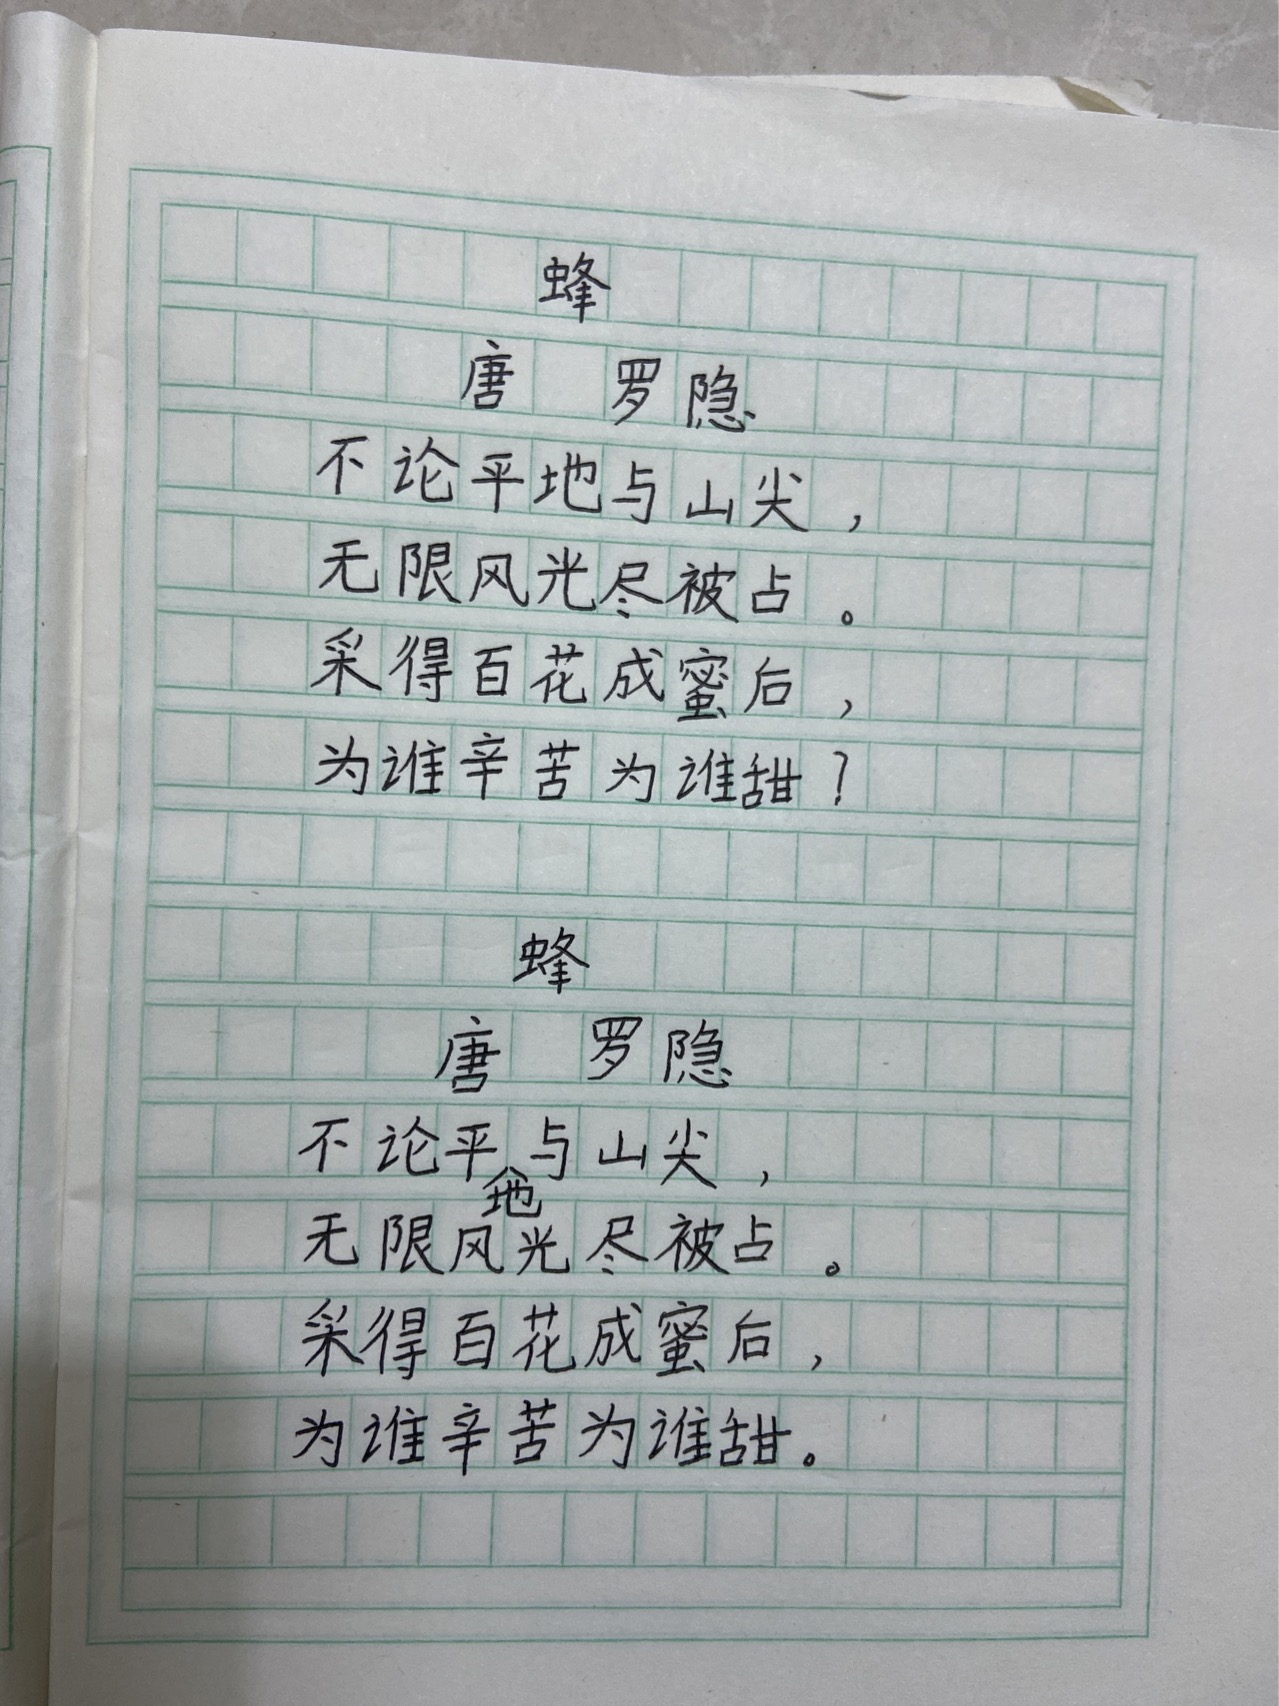 蜂
唐 罗隐
不论平地与山尖，
无限风光尽被占。
采得百花成蜜后，
为谁辛苦为谁甜？

蜂
唐 罗隐
不论平地与山尖，
无限风光尽被占。
采得百花成蜜后，
为谁辛苦为谁甜。